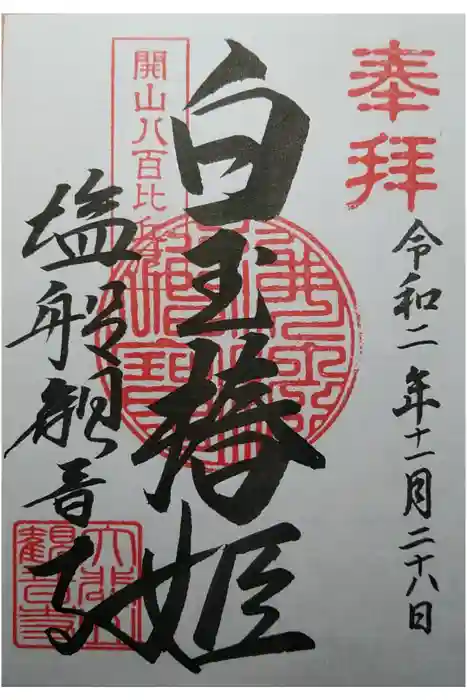 奉拝
令和二年十一月二十八日
白玉椿姫
開山八百比丘尼
塩船観音寺